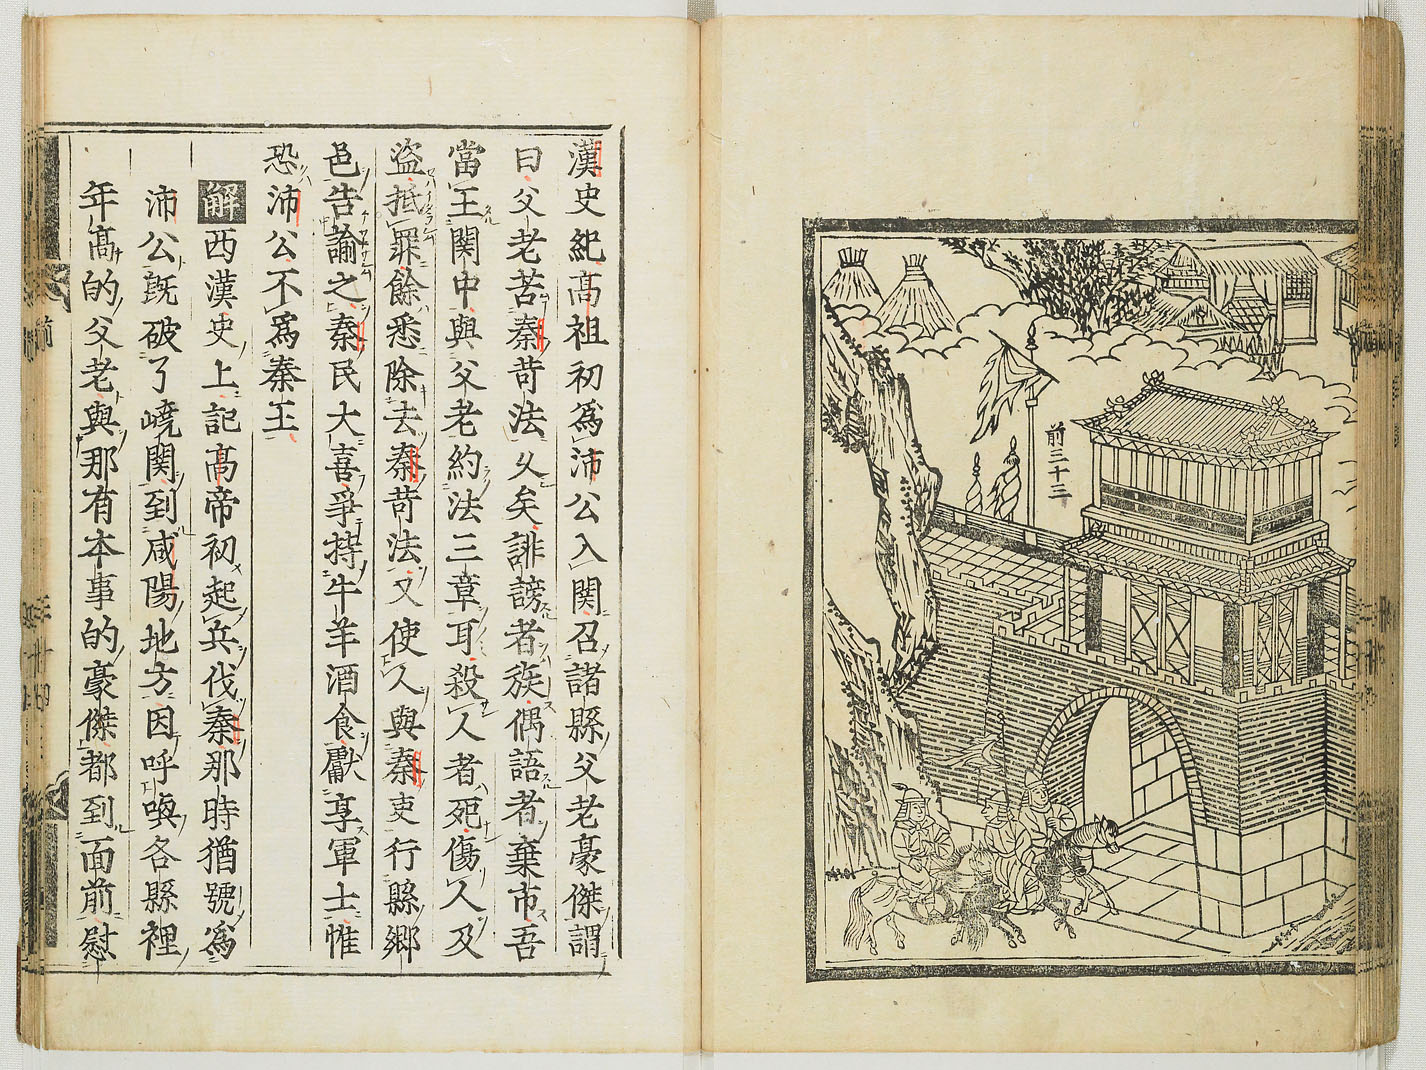 前三十三
漢史紀高祖初爲沛公入関召諸縣父老豪傑謂
曰父老苦秦苛法乆矣誹謗者族偶語者棄市吾
當王関中與父老約法三章耳殺人者死傷人及
盜抵罪餘悉除去秦苛法又使人與秦吏行縣郷
邑告諭之秦民大喜爭持牛羊酒食獻享軍士惟
恐沛公不爲秦王
解西漢史上記高帝初起兵伐秦那時猶號爲
沛公旣破了嶢関到咸陽地方因呼喚各縣裡
年高的父老與那有本事的豪傑都到面前慰